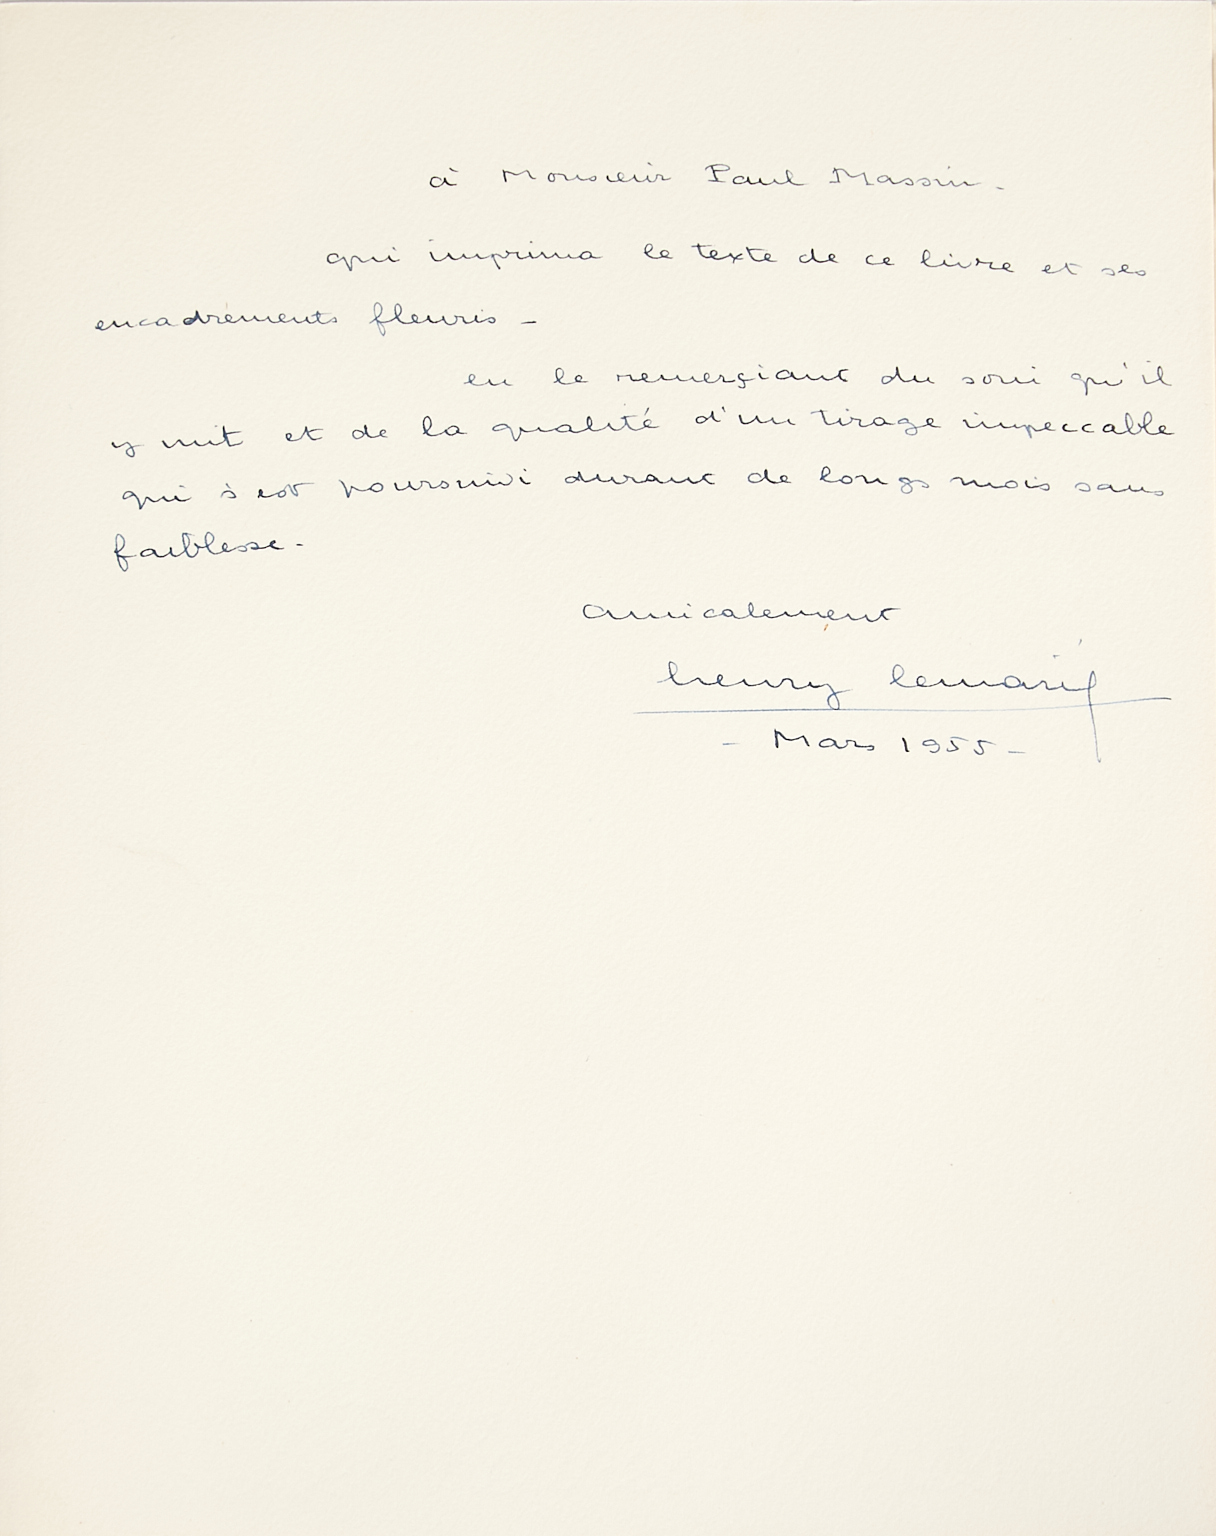 à Monsieur Paul Massin.
qui imprima le texte de ce livre et ses
encadrements fleuris -
en le remerçiant du soin qu'il
y mit et de la qualité d'un tirage impeccable
qui s'est poursuivi durant de longs mois sans
faiblesse -
amicalement
henry lemarié
- Mars 1955 -